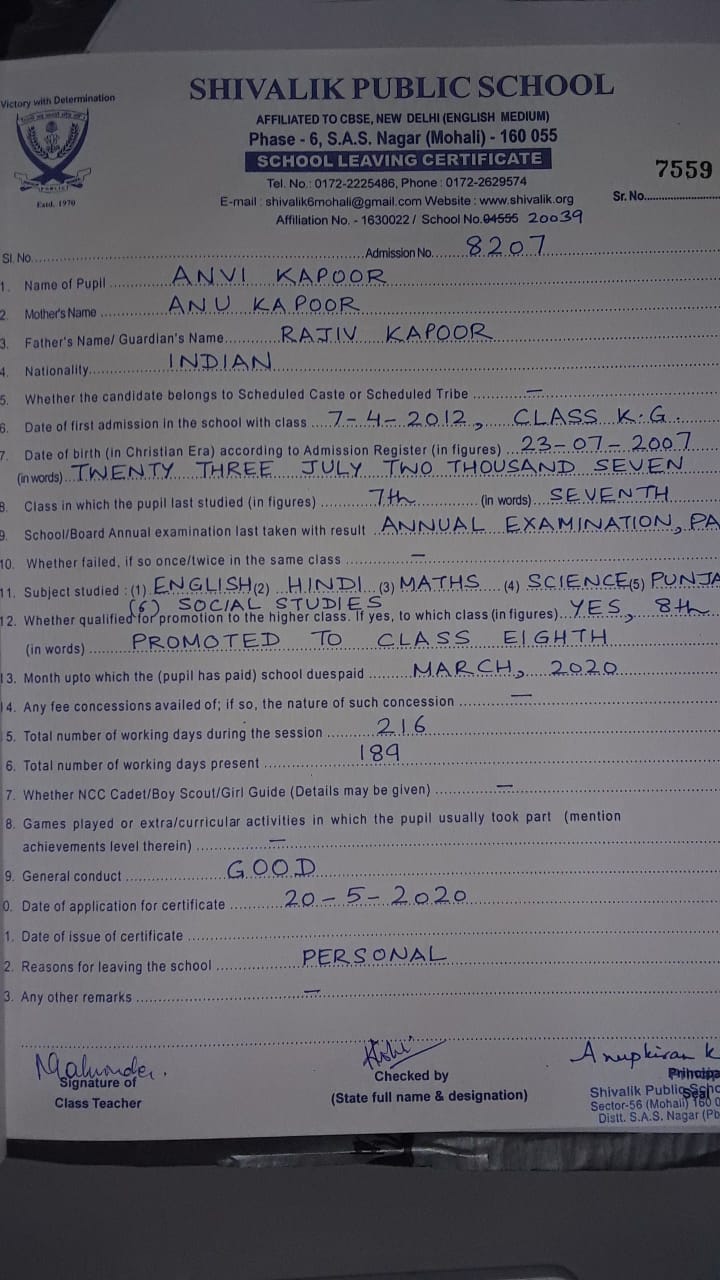 Victory with Determination
SHIVALIK PUBLIC SCHOOL
AFFILIATED TO CBSE, NEW DELHI (ENGLISH MEDIUM)
Phase - 6, S.A.S. Nagar (Mohali) - 160 055
SCHOOL LEAVING CERTIFICATE
Tel. No.: 0172-2225486, Phone : 0172-2629574
E-mail : shivalik6mohali@gmail.com Website : www.shivalik.org
Affiliation No. - 1630022 / School No. 04555 20039
PUBLIC
Estd. 1970
7559
Sr. No.
Sl. No. Admission No. 8207
1. Name of Pupil ANVI KAPOOR
2. Mother's Name ANU KAPOOR
3. Father's Name/ Guardian's Name RAJIV KAPOOR
4. Nationality INDIAN
5. Whether the candidate belongs to Scheduled Caste or Scheduled Tribe —
6. Date of first admission in the school with class 7-4-2012, CLASS K.G.
7. Date of birth (in Christian Era) according to Admission Register (in figures) 23-07-2007
(in words) TWENTY THREE JULY TWO THOUSAND SEVEN
8. Class in which the pupil last studied (in figures) 7th (in words) SEVENTH
9. School/Board Annual examination last taken with result ANNUAL EXAMINATION, PA
10. Whether failed, if so once/twice in the same class —
11. Subject studied : (1) ENGLISH (2) HINDI (3) MATHS (4) SCIENCE (5) PUNJA
(6) SOCIAL STUDIES
12. Whether qualified for promotion to the higher class. If yes, to which class (in figures) YES, 8th
(in words) PROMOTED TO CLASS EIGHTH
13. Month upto which the (pupil has paid) school duespaid MARCH, 2020
14. Any fee concessions availed of; if so, the nature of such concession —
5. Total number of working days during the session 216
6. Total number of working days present 189
7. Whether NCC Cadet/Boy Scout/Girl Guide (Details may be given) —
8. Games played or extra/curricular activities in which the pupil usually took part (mention
achievements level therein) —
9. General conduct GOOD
0. Date of application for certificate 20-5-2020
1. Date of issue of certificate
2. Reasons for leaving the school PERSONAL
3. Any other remarks —
Anupkiran K
Signature of
Class Teacher
Checked by
(State full name & designation)
Principa
Seal
Shivalik Public Scho
Sector-56 (Mohali) 160 0
Distt. S.A.S. Nagar (Pb